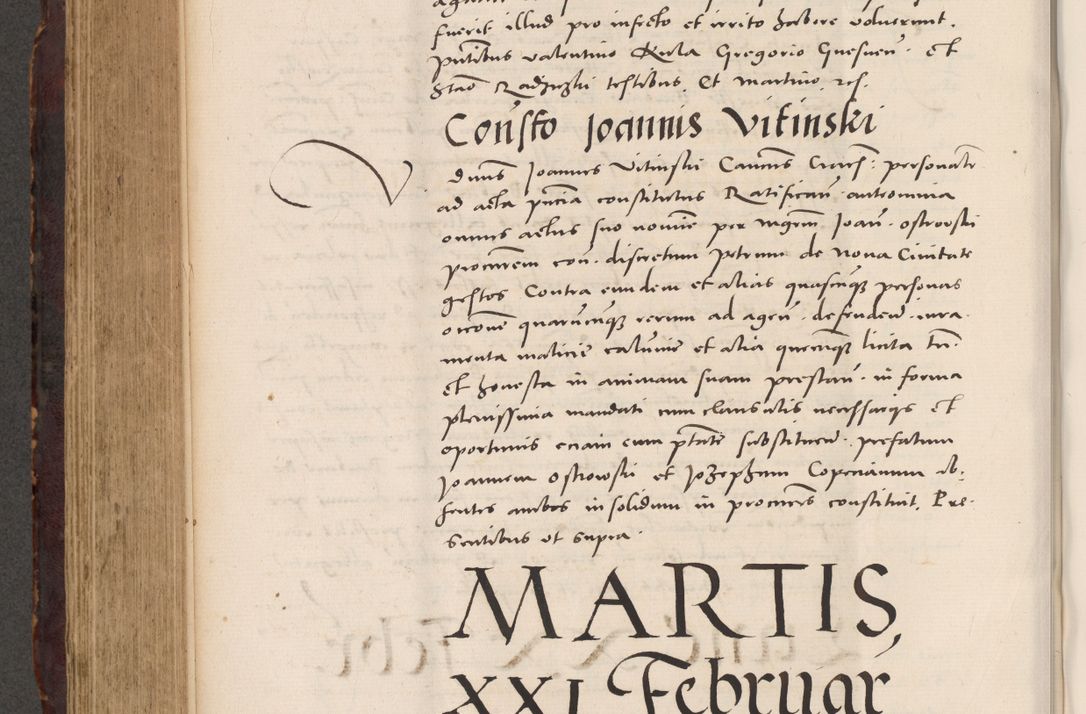 fuerit illud pro infecto et irrito habere voluerunt.
pñtibus valentino Kula Gregorio Et
Stão Radziszki testibus. Et martino
Consto Joannis Vitinski
V dnus Joannes Vitinski Cancus Cracs: personaliter
ad acta pñcia constitutus Ratifican̄ antenomina
omnes actus suo nomine per mgrm Joan̄. ostrowski
procrem con̄. discretum petrum de Nova Civitate
gestos Contra eundem et alias quascunqz personas
occõne quarũcunqz rerum ad agen̄. defenden̄. iura
menta malicie calumie et alia quecunqz licita tn̄.
et honesta in animam suam prestan̄. in forma
plenissima mandati cum clausulis necessarijs et
oportunis eciam cum ptate substituen̄. prefatum
Joannem ostrowski et Jozephum Copecianum ab
sentes ambos in solidum in procures constituit. Pre
sentibus ut supra
MARTIS,
XXI Februar